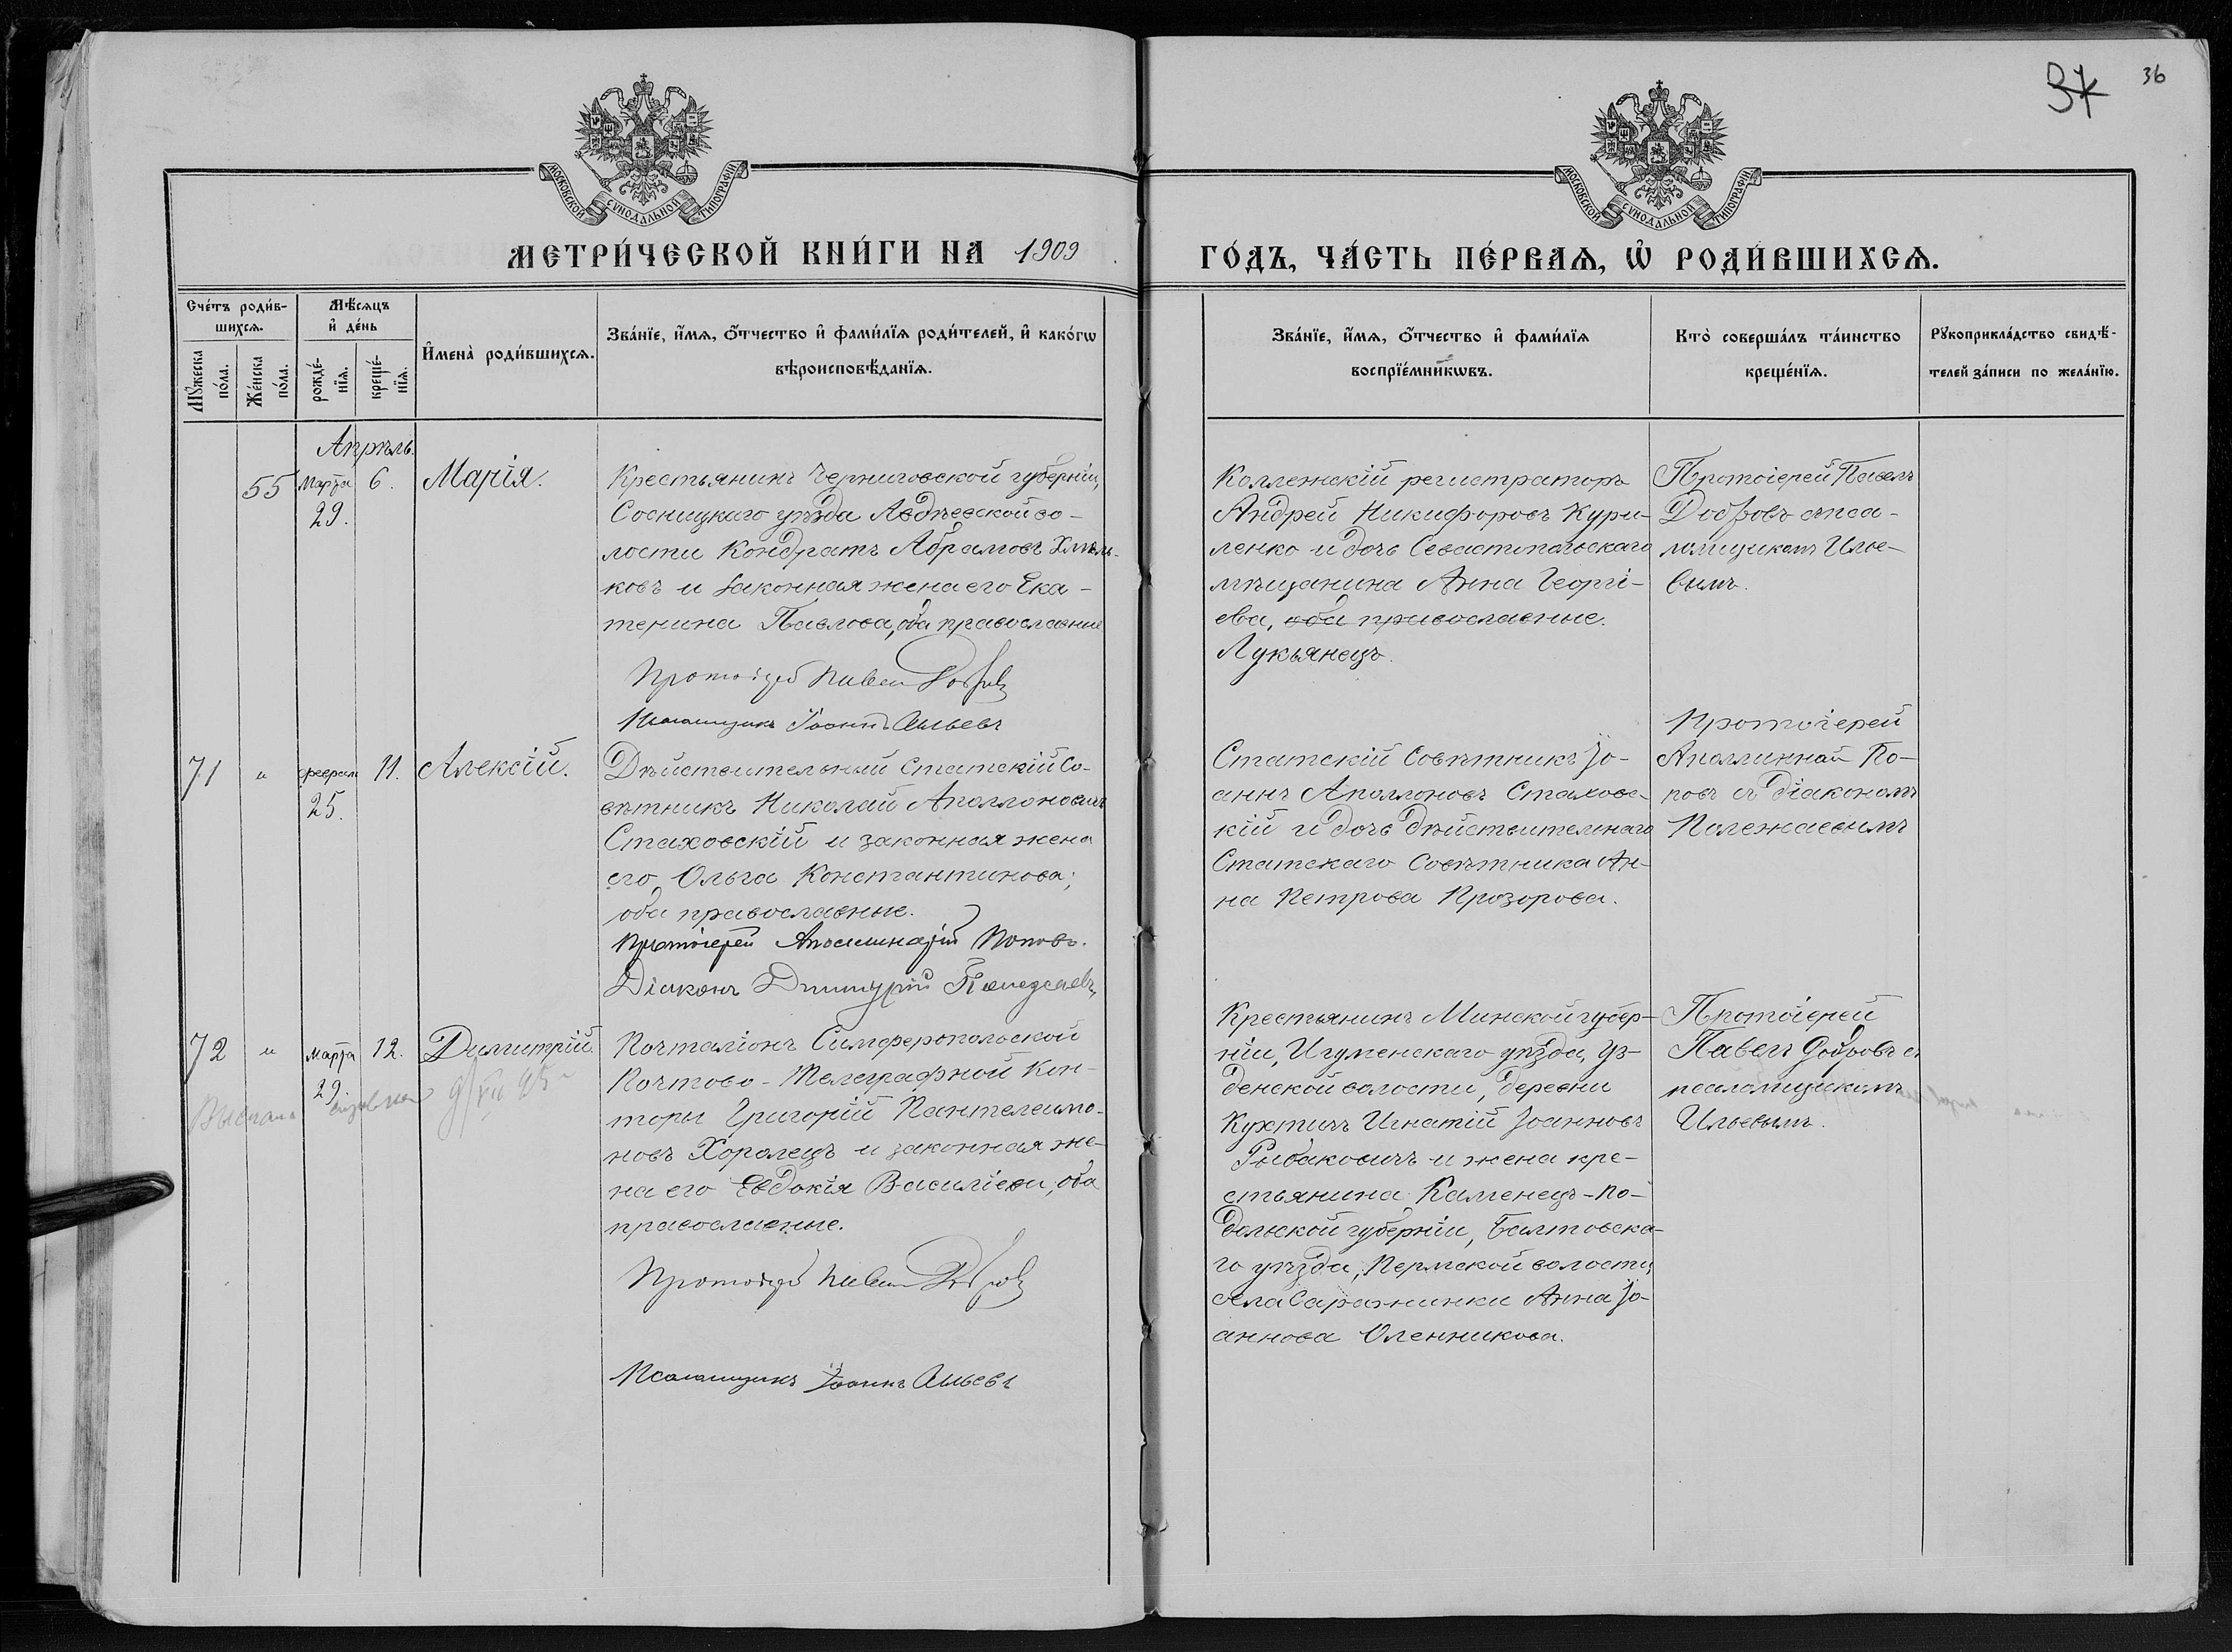 37 36
МОСКОВСКОЙ СУНОДАЛЬНОЙ ТИПОГРАФІИ
МОСКОВСКОЙ СУНОДАЛЬНОЙ ТИПОГРАФІИ
МЕТРИ́ЧЕСКОЙ КНИ́ГИ НА 1909 ГО́ДЪ, ЧА́СТЬ ПЕ́РВАѦ, Ѡ҆ РОДИ́ВШИХСѦ.
Сче́тъ роди́в-
шихсѧ.
Мꙋ́жеска по́ла.
Же́нска по́ла.
Мѣ́сѧцъ
и҆ де́нь
рожде́-
нїѧ.
креще́-
нїѧ.
И҆мена̀ роди́вшихсѧ.
Зва́нїе, и҆́мѧ, ѻ҆́тчество и҆ фами́лїѧ роди́телей, и҆ како́гѡ
вѣроисповѣ́данїѧ.
Зва́нїе, и҆́мѧ, ѻ҆́тчество и҆ фами́лїѧ
воспрїе́мникѡвъ.
Кто̀ соверша́лъ та́инство
креще́нїѧ.
Рꙋкоприкла́дство свидѣ́-
телей за́писи по жела́нїю.
Апрѣль.
55 Марта 29. 6. Марія.
Крестьянинъ Черниговской губерніи,
Сосницкаго уѣзда Авдѣевской во-
лости Кондратъ Абрамовъ Хмѣль-
ковъ и законная жена его Ека-
терина Павлова, оба православные
Протоіерей Павелъ Добровъ
Псаломщикъ Іоаннъ Ильевъ
Коллежскій регистраторъ
Андрей Никифоровъ Кури-
ленко и дочь Севастопольскаго
мѣщанина Анна Георгі-
ева, оба православные.
Лукьянецъ.
Протоіерей Павелъ
Добровъ съ пса-
ломщикомъ Илье-
вымъ.
71 " февраля 25. 11. Алексій.
Дѣйствительный Статскій Со-
вѣтникъ Николай Аполлоновичъ
Стаховскій и законная жена
его Ольга Константинова;
оба православные.
Протоіерей Аполлинарій Поповъ.
Діаконъ Димитрій Полежаевъ
Статскій Совѣтникъ Іо-
аннъ Аполлоновъ Стаховс-
кій и дочь дѣйствительнаго
Статскаго Совѣтника Ан-
на Петрова Прозорова.
Протоіерей
Аполлинарій По-
повъ съ діакономъ
Полежаевымъ
72 " марта 29. 12. Димитрій.
Почталіонъ Симферопольской
Почтово-Телеграфной Кон-
торы Григорій Пантелеимо-
новъ Хоролецъ и законная же-
на его Евдокія Василіева; оба
православные.
Протоіерей Павелъ Добровъ
Псаломщикъ Іоаннъ Ильевъ
Крестьянинъ Минской губер-
ніи, Игуменскаго уѣзда, Уз-
денской волости, деревни
Кухтичъ Игнатій Іоанновъ
Рыбаковичъ и жена кре-
стьянина Каменецъ-По-
дольской губерніи, Балтовска-
го уѣзда, Пермской волости,
села Саражинки Анна Іо-
аннова Оленникова.
Протоіерей
Павелъ Добровъ съ
псаломщикомъ
Ильевымъ.